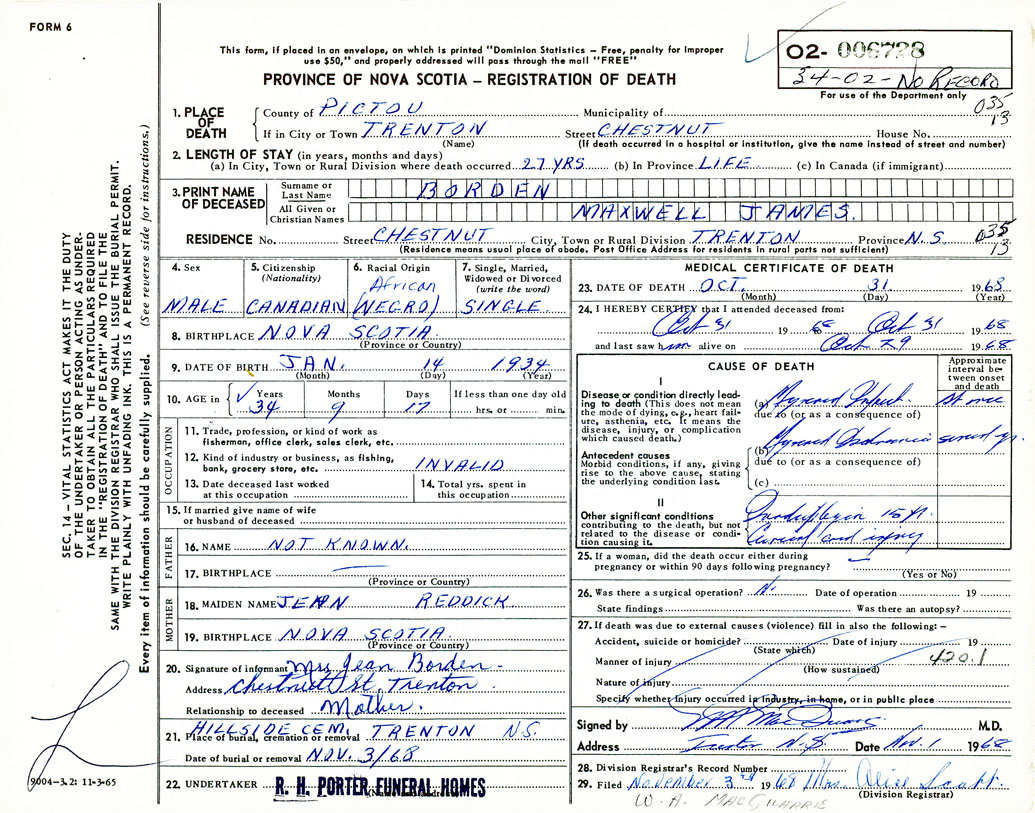 FORM 6
This form, if placed in an envelope, on which is printed "Dominion Statistics – Free, penalty for improper
use $50," and properly addressed will pass through the mail "FREE"
PROVINCE OF NOVA SCOTIA – REGISTRATION OF DEATH
02- 006728
34-02-NO RECORD
For use of the Department only
035
13
1. PLACE OF DEATH
County of PICTOU Municipality of
If in City or Town TRENTON Street CHESTNUT House No.
(Name) (If death occurred in a hospital or institution, give the name instead of street and number)
2. LENGTH OF STAY (in years, months and days)
(a) In City, Town or Rural Division where death occurred 27 YRS (b) In Province LIFE (c) In Canada (if immigrant)
3. PRINT NAME OF DECEASED
Surname or Last Name BORDEN
All Given or Christian Names MAXWELL JAMES.
RESIDENCE No. Street CHESTNUT City, Town or Rural Division TRENTON Province N.S. 035
(Residence means usual place of abode. Post Office Address for residents in rural parts not sufficient) 13
4. Sex MALE
5. Citizenship (Nationality) CANADIAN
6. Racial Origin African (NEGRO)
7. Single, Married, Widowed or Divorced (write the word) SINGLE
8. BIRTHPLACE NOVA SCOTIA.
(Province or Country)
9. DATE OF BIRTH JAN. 14 1934
(Month) (Day) (Year)
10. AGE in Years 34 Months 9 Days 17 If less than one day old hrs. or min.
OCCUPATION
11. Trade, profession, or kind of work as
fisherman, office clerk, sales clerk, etc.
12. Kind of industry or business, as fishing,
bank, grocery store, etc. INVALID
13. Date deceased last worked
at this occupation
14. Total yrs. spent in
this occupation
15. If married give name of wife
or husband of deceased
FATHER
16. NAME NOT KNOWN.
17. BIRTHPLACE
(Province or Country)
MOTHER
18. MAIDEN NAME JEAN REDDICK.
19. BIRTHPLACE NOVA SCOTIA.
(Province or Country)
20. Signature of informant Mrs Jean Borden.
Address Chestnut St. Trenton
Relationship to deceased Mother.
21. Place of burial, cremation or removal HILLSIDE CEM. TRENTON N.S.
Date of burial or removal NOV. 3/68
22. UNDERTAKER R. H. PORTER FUNERAL HOMES
MEDICAL CERTIFICATE OF DEATH
23. DATE OF DEATH OCT. 31 1968
(Month) (Day) (Year)
24. I HEREBY CERTIFY that I attended deceased from:
Oct 31 1968 Oct 31 1968
and last saw him alive on Oct 29 1968
CAUSE OF DEATH
Approximate interval between onset and death
I
Disease or condition directly leading to death (This does not mean
the mode of dying, e.g., heart failure, asthenia, etc. It means the
disease, injury, or complication
which caused death.)
(a) at once
due to (or as a consequence of)
Antecedent causes
Morbid conditions, if any, giving
rise to the above cause, stating
the underlying condition last.
(b)
due to (or as a consequence of)
(c)
II
Other significant conditions
contributing to the death, but not
related to the disease or condition causing it.
cord injury
25. If a woman, did the death occur either during
pregnancy or within 90 days following pregnancy?
(Yes or No)
26. Was there a surgical operation? Date of operation 19
State findings Was there an autopsy?
27. If death was due to external causes (violence) fill in also the following: –
Accident, suicide or homicide? Date of injury 19
(State which)
Manner of injury 420.1
(How sustained)
Nature of injury
Specify whether injury occurred in industry, in home, or in public place
Signed by M.D.
Address N.S. Date Nov. 1 1968
28. Division Registrar's Record Number
29. Filed November 3rd 1968 Mrs. Alice
(Division Registrar)
W. A. MACQUARRIE
SEC. 14 – VITAL STATISTICS ACT MAKES IT THE DUTY
OF THE UNDERTAKER OR PERSON ACTING AS UNDERTAKER TO OBTAIN ALL THE PARTICULARS REQUIRED
IN THE "REGISTRATION OF DEATH" AND TO FILE THE
SAME WITH THE DIVISION REGISTRAR WHO SHALL ISSUE THE BURIAL PERMIT.
WRITE PLAINLY WITH UNFADING INK. THIS IS A PERMANENT RECORD.
Every item of information should be carefully supplied. (See reverse side for instructions.)
9004-3.2: 11-3-65